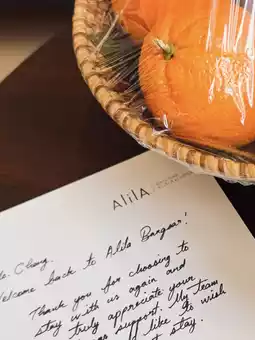 AlilA
Chang,
Welcome back to Alila Bangsar!
Thank you for choosing to
stay with us again and
truly appreciate your
support. My team
like to wish
stay.